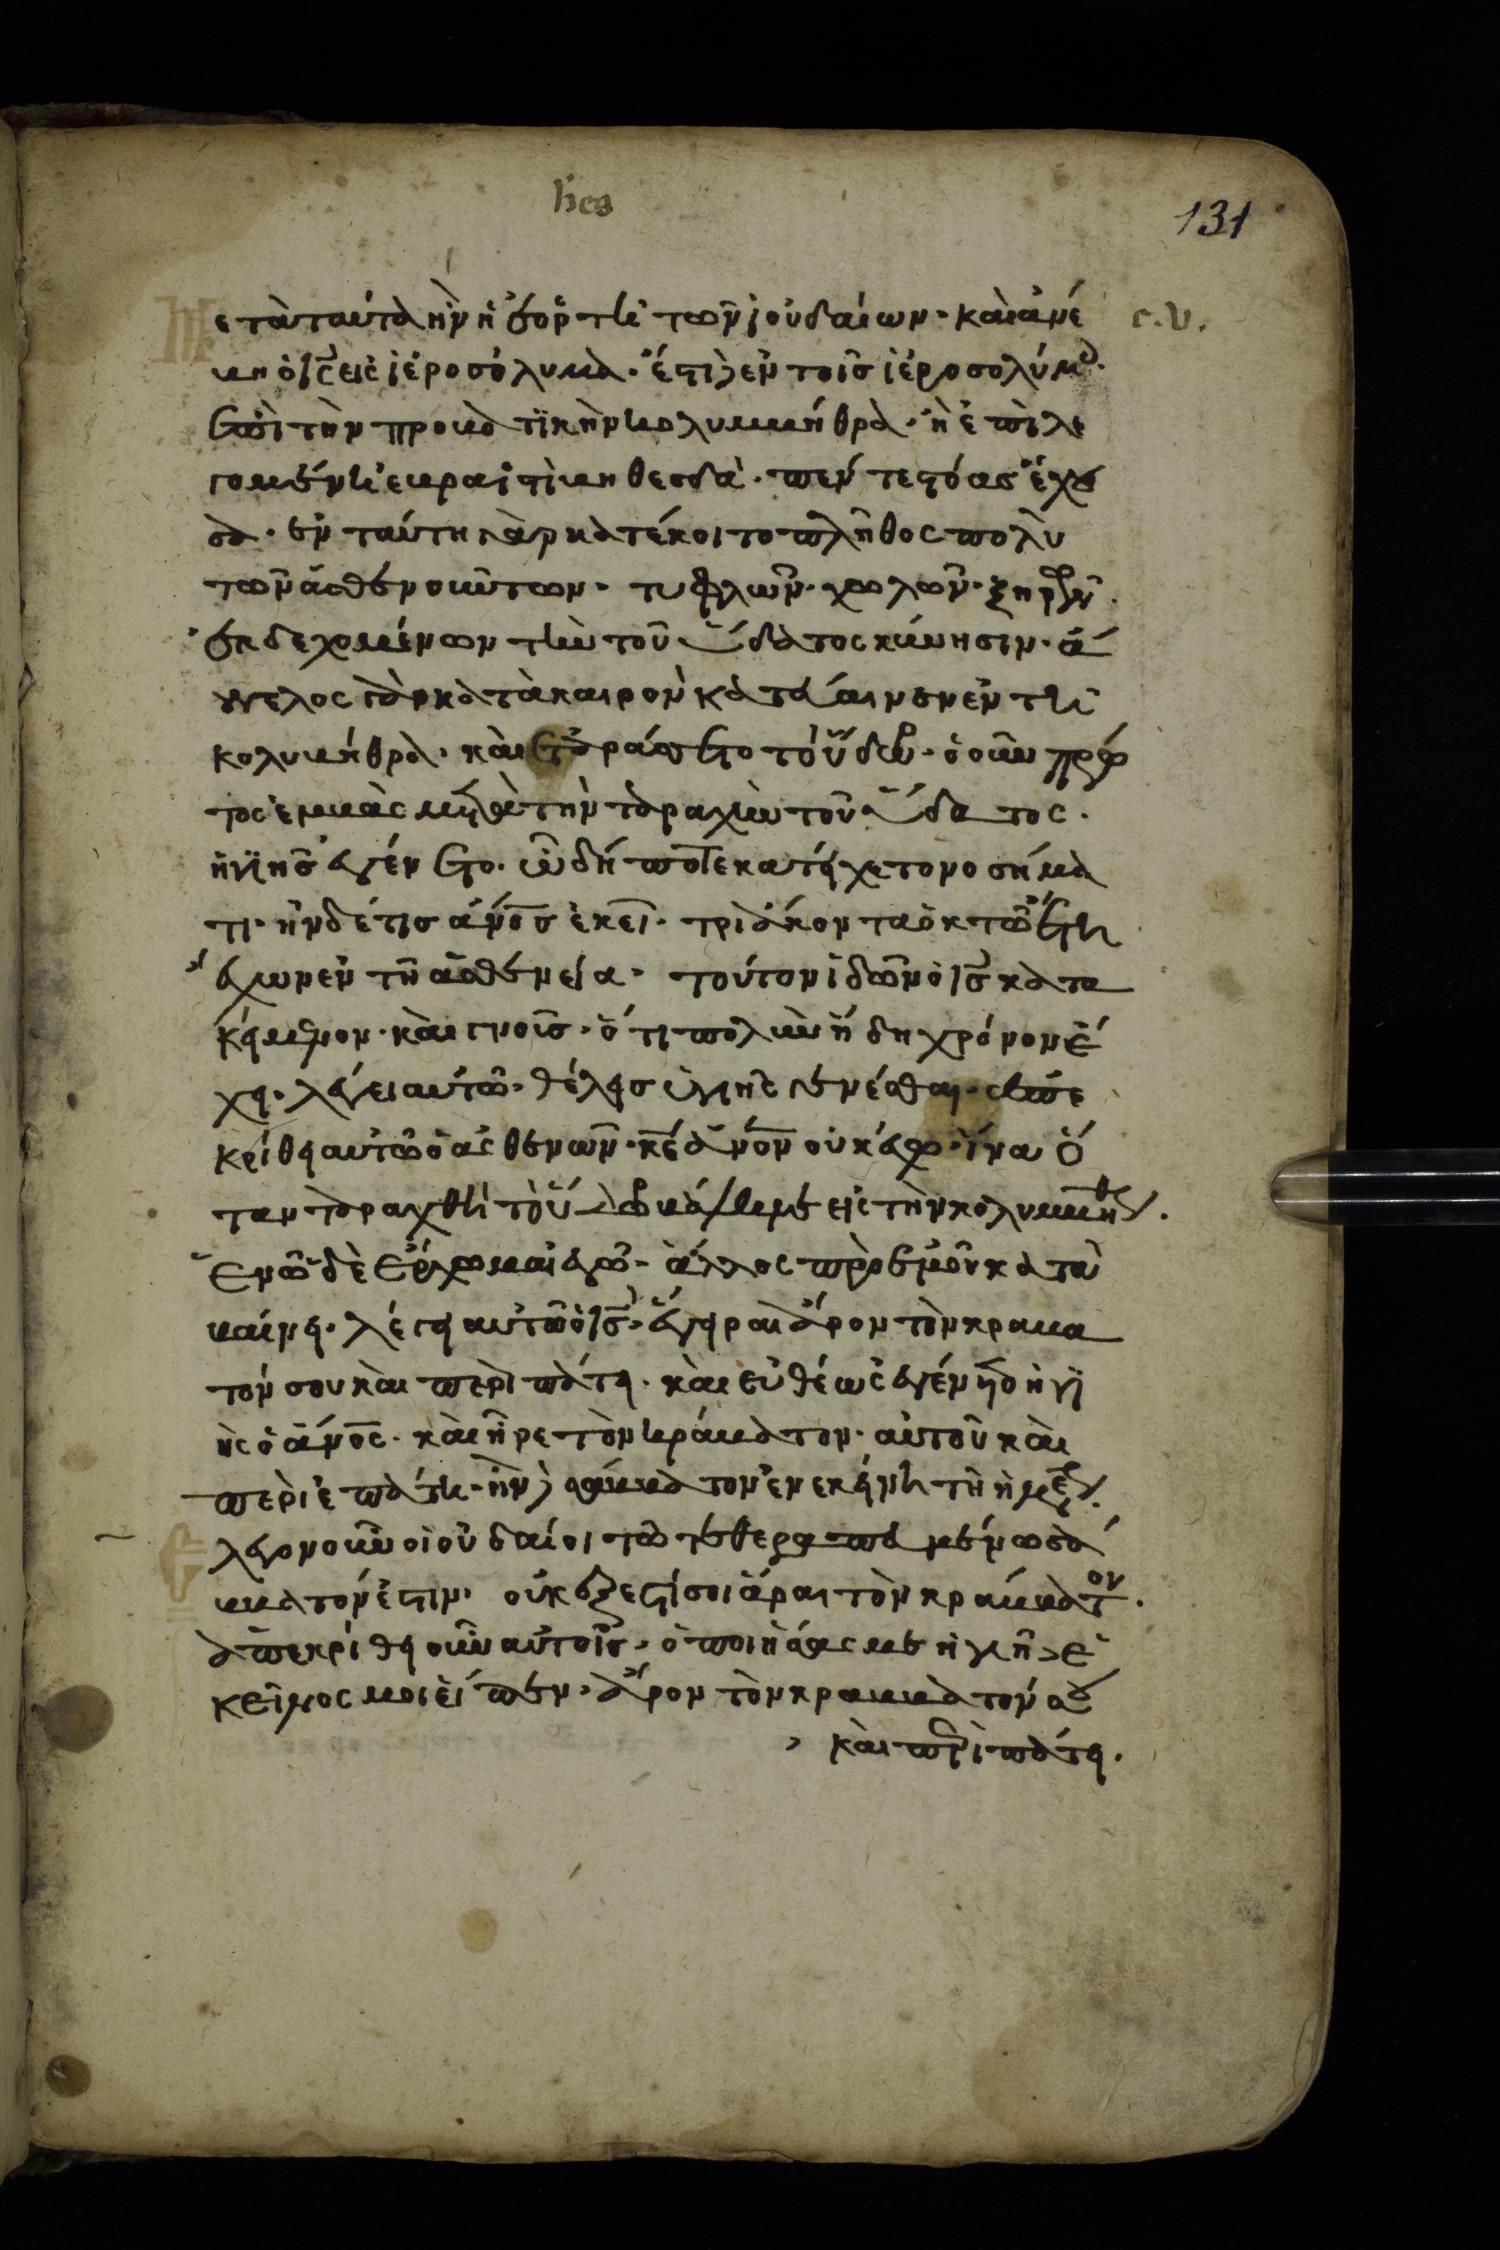 hes
131
Μετὰ ταύτα ἢν ἡ ἑορτὴ τῶν ἰουδαίων· καὶ ἀνέ
c. v.
βη ὁ ἰς εἰς ἱεροσόλυμα· ἔστι δὲ ἐν τοῖς ἱεροσολύμοις·
ἐπὶ τὴν προβατικὴν κολυμβήθρα· ἡ ἐπιλε
γομένη ἑβραϊστὶ βηθεσδὰ· πέντε στόας ἔχου
σα· ἐν ταύτη γὰρ κατέκοιτο πλῆθος πολὺ
τῶν ἀσθενούντων· τυφλῶν· χωλῶν· ξηρῶν·
ἐκδεχομένων τὴν τοῦ ὕδατος κίνησιν· ἄγ
γελος γὰρ κατὰ καιρὸν κατάβαινεν ἐν τῆ
κολυβήθρα· καὶ ἐταράσσετο τὸ ὕδωρ· ὁ οὖν πρῶ
τος ἐμβὰς μετὰ τὴν ταραχὴν τοῦ ὕδατος·
ὑγιὴς ἐγένετο· ὧ δήποτε κατήχετο νοσήμα
τι· ἦν δέ τις ἄνος ἐκεῖ· τριάκοντα ὀκτῶ ἔτη
ἔχων ἐν τῆ ἀσθενεία· τούτον ἰδὼν ὁ ἰς κατα
κείμενον· καὶ γνοῦς· ὅτι πολὺν ἤδη χρόνον ἔ
χει· λέγει αὐτῶ· θέλεις ὑγιὴς γενέσθαι· ἀπε
κρίθη αὐτῶ ὁ ἀσθενῶν· κέ ἄνον οὐκ ἔχω· ἵνα ὅ
ταν ταραχθῆ τὸ ὕδωρ βάλλη με εἰς τὴν κολυμβήθραν·
ἐν ὧ δὲ ἔρχωμαι ἐγὼ· ἄλλος πρὸ ἐμοῦ κατα
βαίνει· λέγει αὐτῶ ὁ ἰς· ἔγειραι ἄρον τὸν κραβα
τόν σου καὶ περιπάτει· καὶ εὐθέως ἐγένετο ὑγι
ὴς ὁ ἄνος· καὶ ἦρε τὸν κράβατον αὐτοῦ καὶ
περιεπάτη· ἦν δὲ σάββατον ἐν ἐκείνη τῆ ἡμέρα·
Ἔλεγον οὖν οἱ ἰουδαίοι τῶ τεθεραπευμένω σά
βατόν ἐστιν· οὐκ ἔξεστί σοι ἄραι τὸν κράββατον·
ἀπεκρίθη οὖν αὐτοῖς· ὁ ποιήσας με ὑγιῆ ἐ
κεῖνος μοι εἶπεν· ἄρον τὸν κραββατόν σου
καὶ περιπάτει·